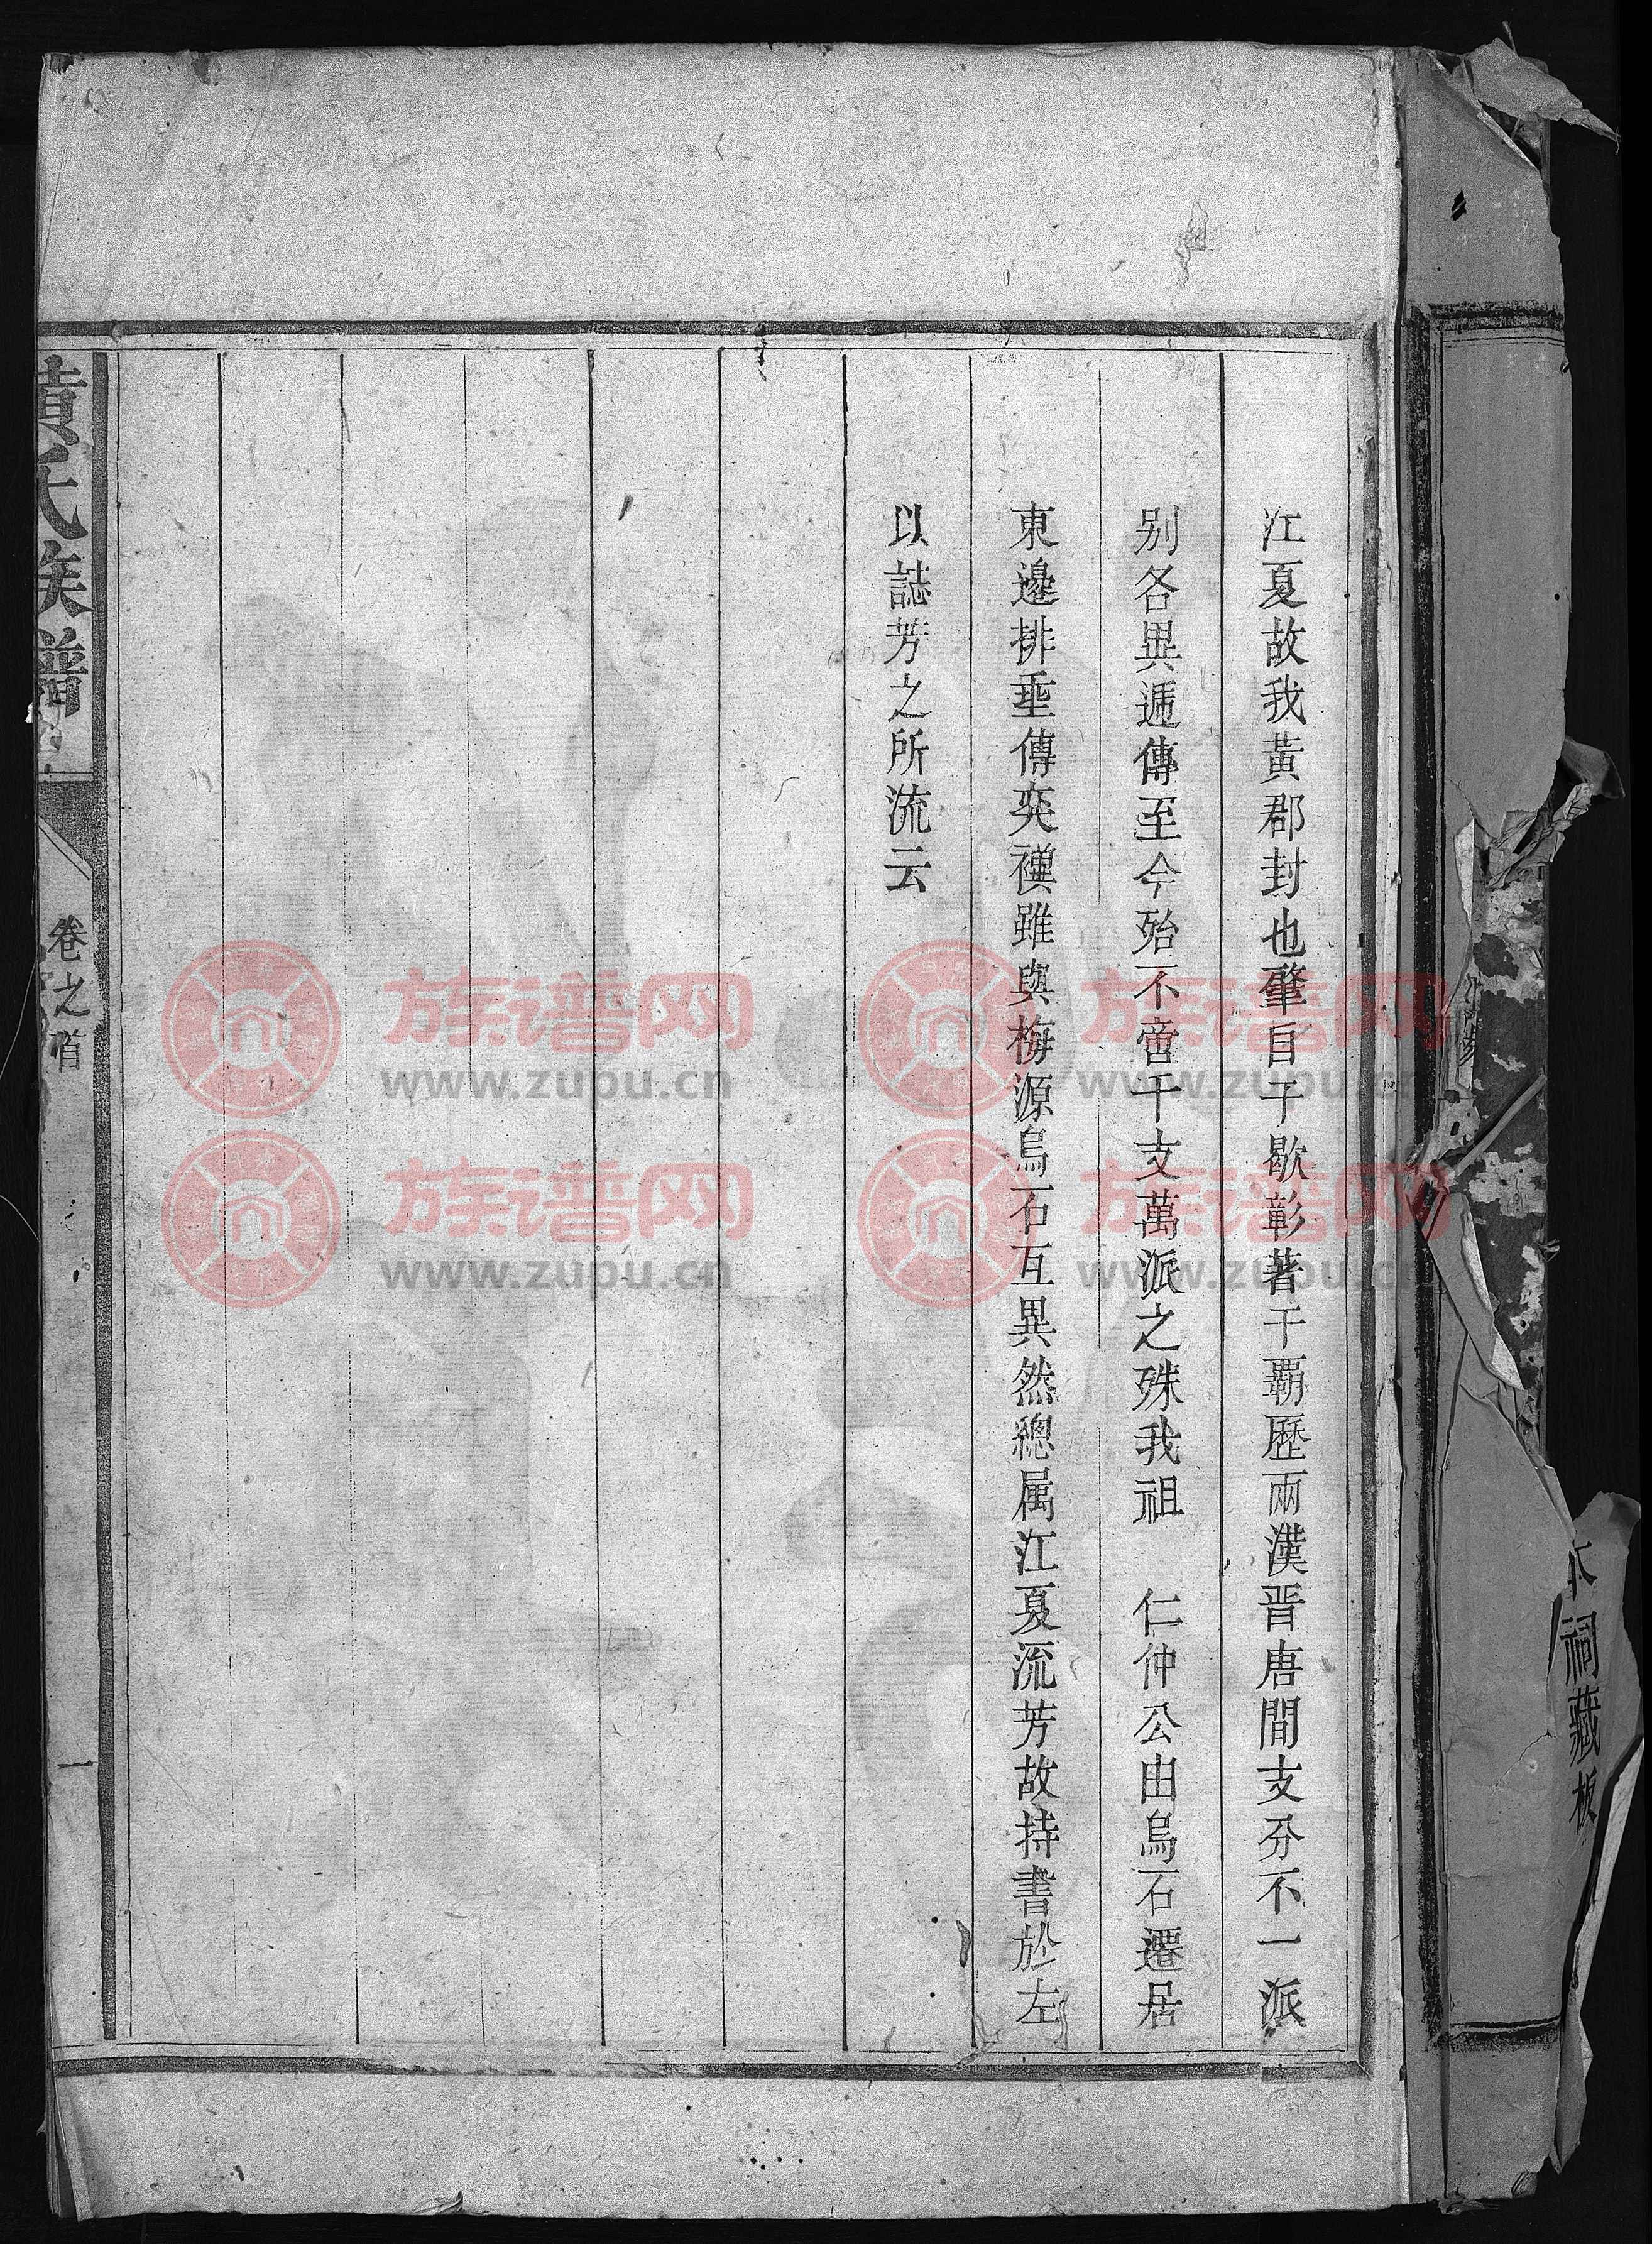 江夏故我黃郡封也肇自于歇彰著于霸歷兩漢晋唐間支分不一派
别各異遞傳至今殆不啻千支萬派之殊我祖　仁仲公由烏石遷居
東邊排垂傳奕禩雖與梅源烏石互異然總属江夏流芳故持書於左
以誌芳之所流云
黃氏族譜
卷之首
一
祠藏板
族谱网
www.zupu.cn
族谱网
www.zupu.cn
族谱网
www.zupu.cn
族谱网
www.zupu.cn